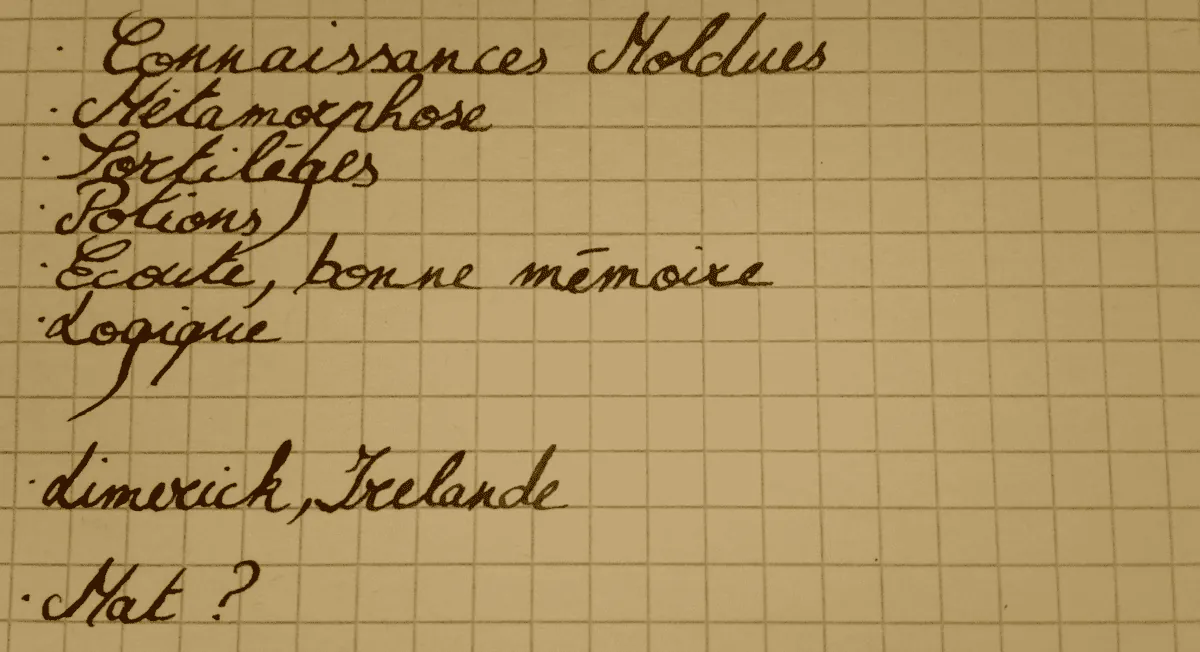 · Connaissances Moldues
· Métamorphose
· Sortilèges
· Potions
· Ecoute, bonne mémoire
· Logique
· Limerick, Irelande
· Mat ?